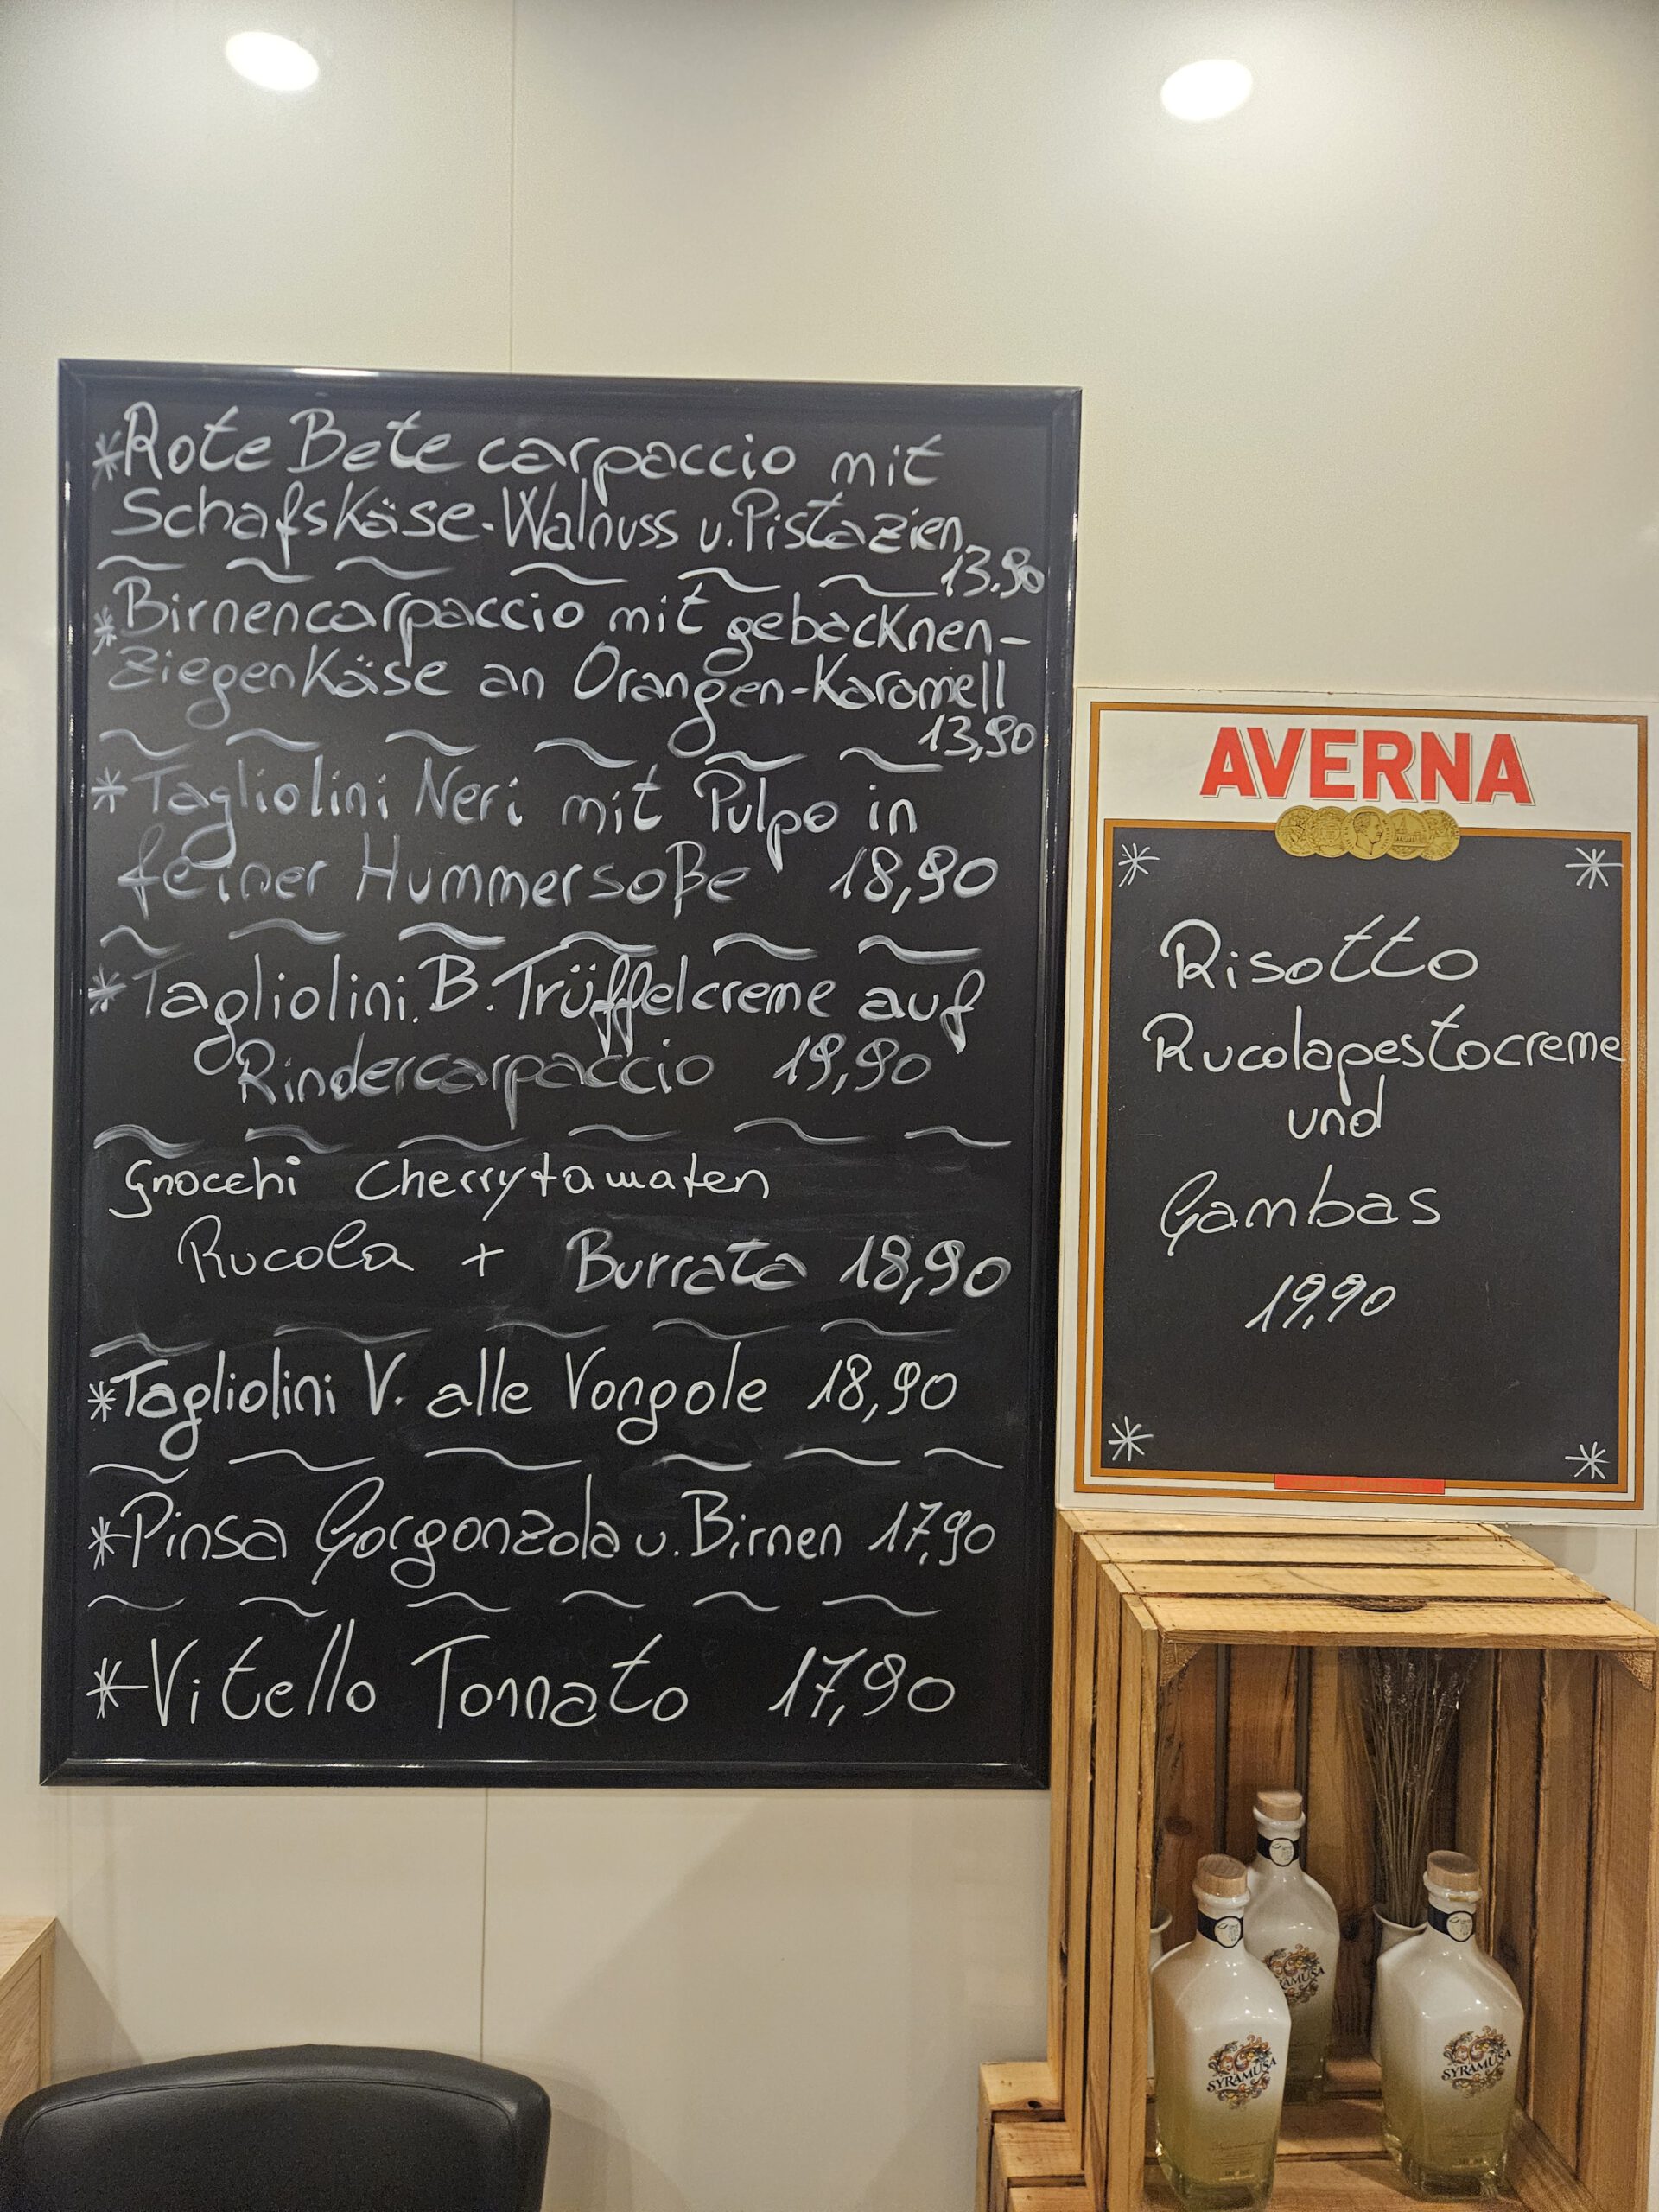 *Rote Bete carpaccio mit
Schafskäse-Walnuss u. Pistazien
13.90
*Birnencarpaccio mit gebacknen-
Ziegenkäse an Orangen-Karamell
13,90
*Tagliolini Neri mit Pulpo in
feiner Hummersoße 18,90
*Tagliolini B. Trüffelcreme auf
Rindercarpaccio 19,90
Gnocchi Cherrytamaten
Rucola + Burrata 18,90
*Tagliolini V. alle Vongole 18,90
*Pinsa Gorgonzola u. Birnen 17,90
*Vitello Tonnato 17,90
AVERNA
Risotto
Rucolapestocreme
und
Gambas
19,90
SYRAMUSA
SYRAMUSA
SYRAMUSA